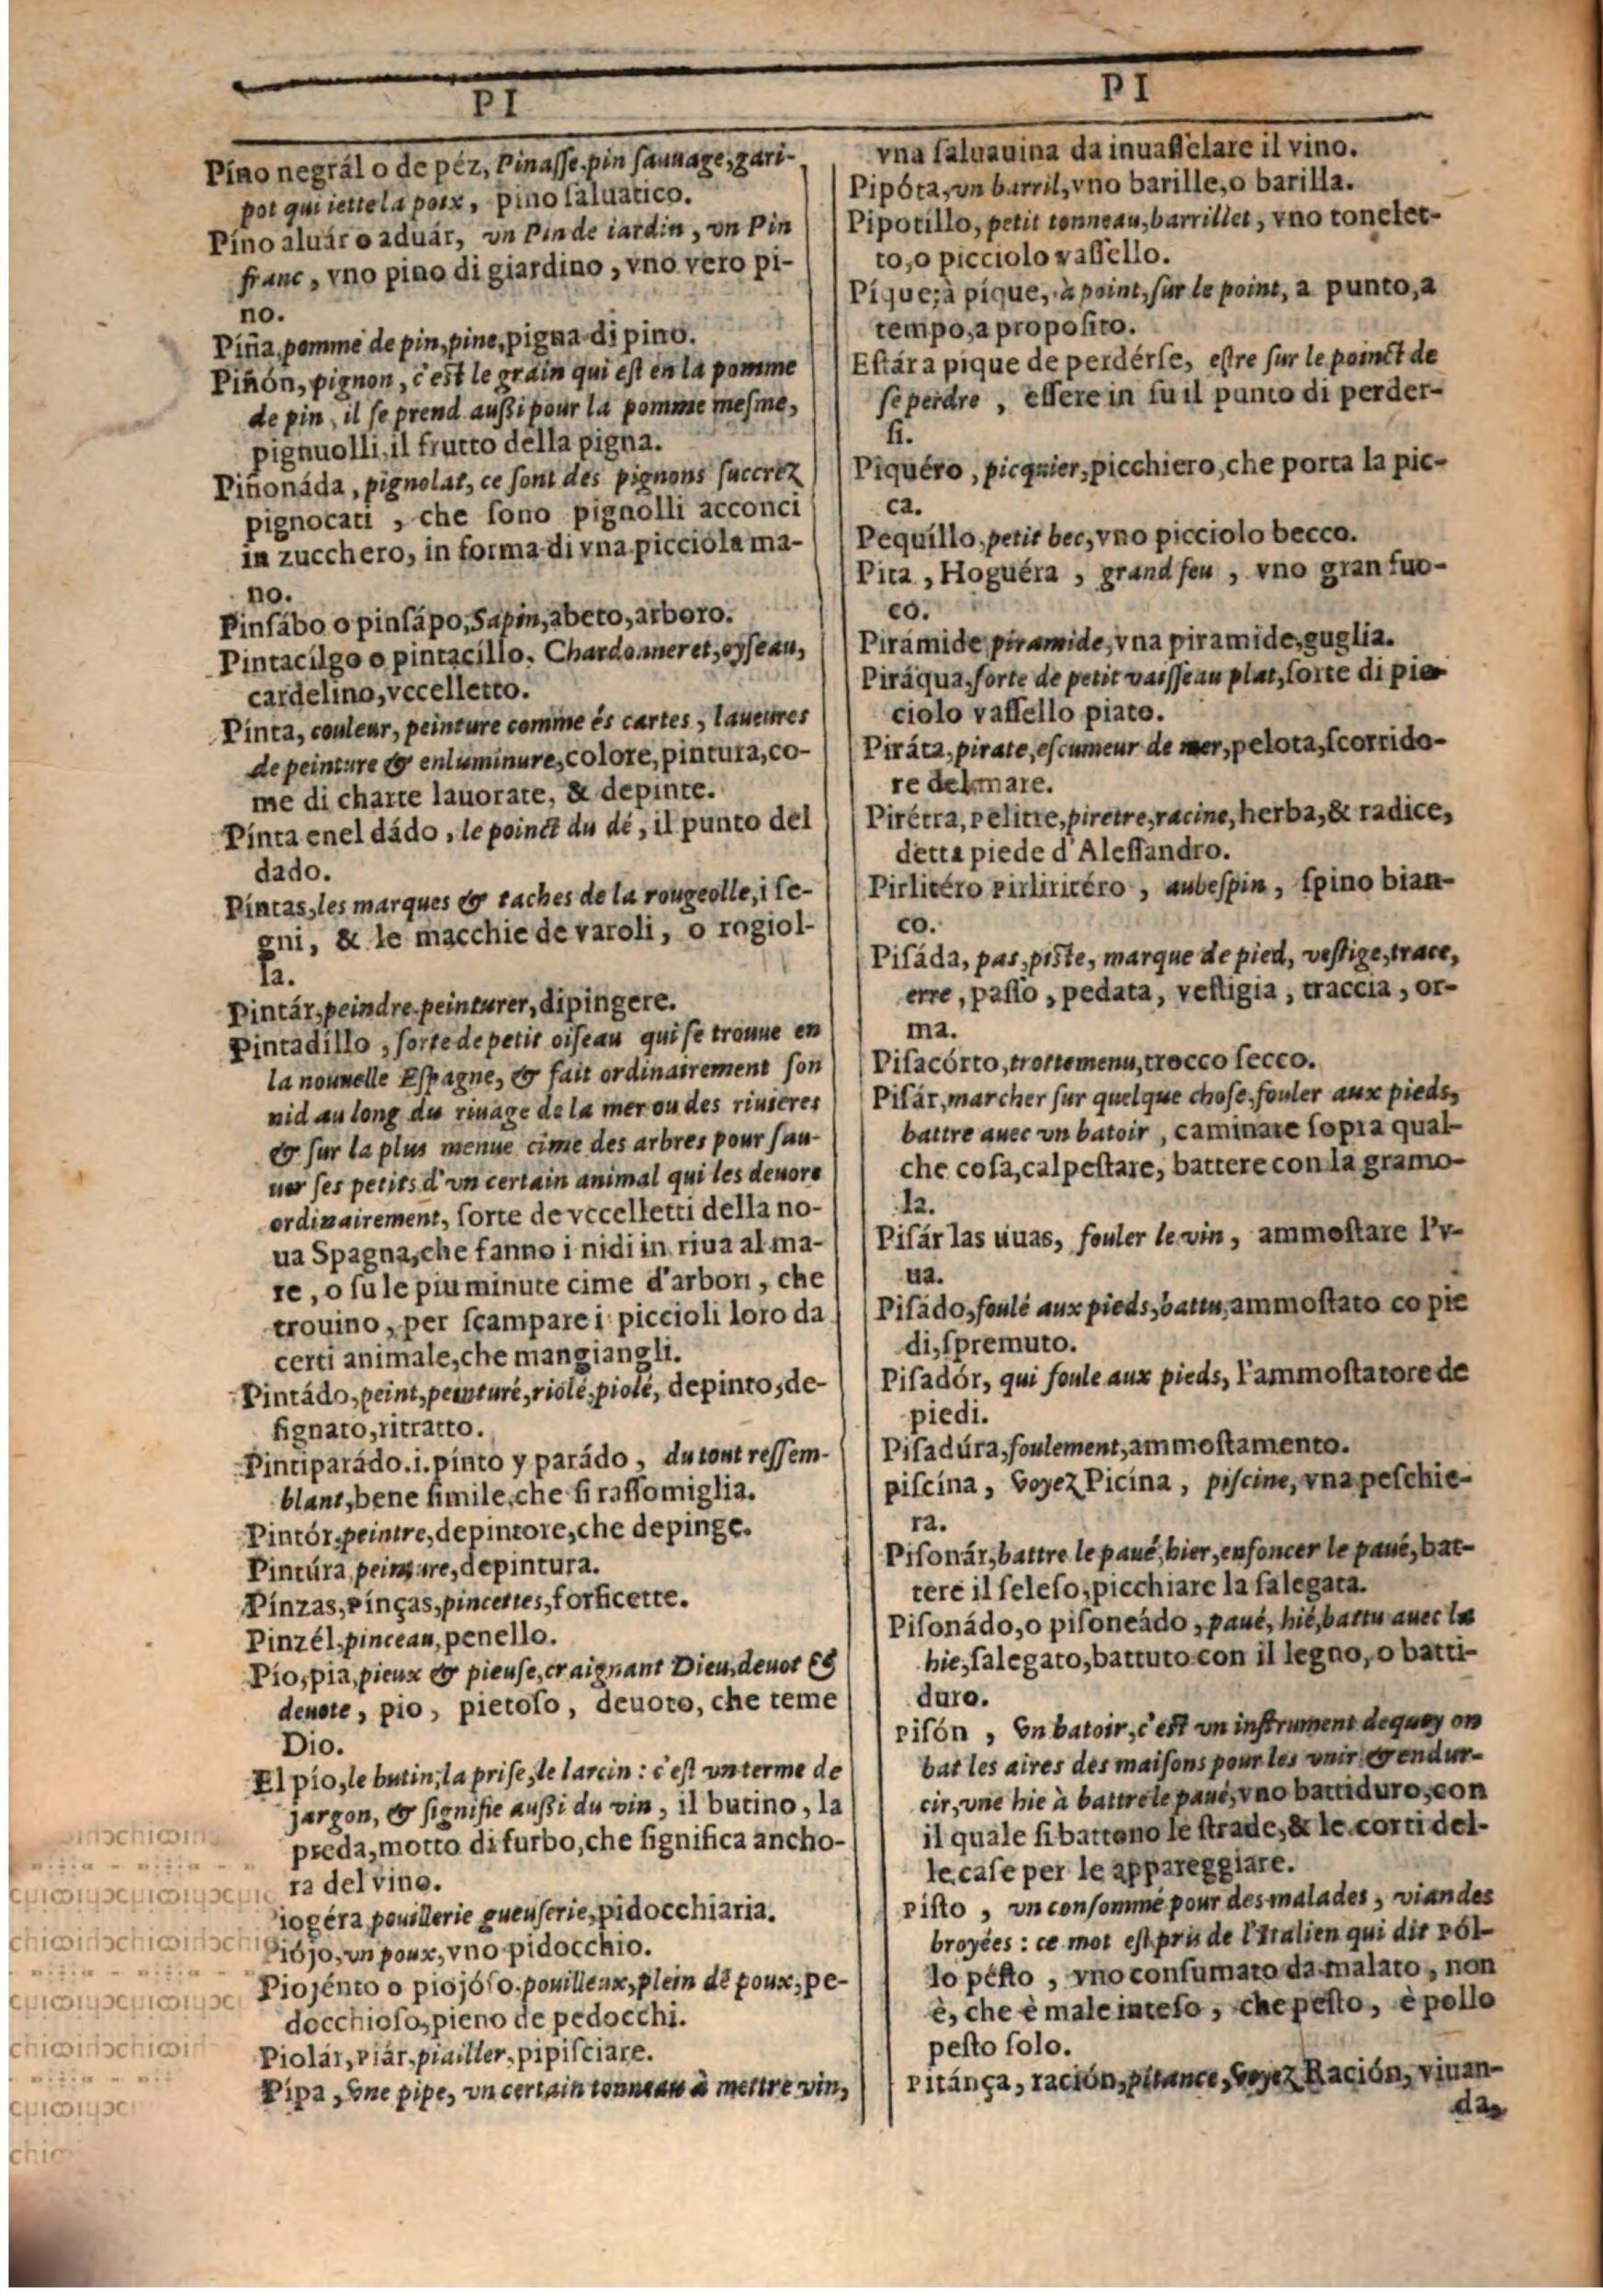 PI
Píno negrál o de péz, Pinasse, pin sauuage, gari-
pot qui iette la poix, pino saluatico.
Píno aluár o aduár, vn Pin de iardin, vn Pin
franc, vno pino di giardino, vno vero pi-
no.
Píña, pomme de pin, pine, pigna di pino.
Piñón, pignon, c'est le grain qui est en la pomme
de pin, il se prend aussi pour la pomme mesme,
pignuolli, il frutto della pigna.
Piñonáda, pignolat, ce sont des pignons succrez
pignocati, che sono pignolli acconci
in zucchero, in forma di vna picciola ma-
no.
Pinsábo o pinsápo, Sapin, abeto, arboro.
Pintacílgo o pintacíllo, Chardonneret, oyseau,
cardelino, vccelletto.
Pínta, couleur, peinture comme és cartes, laueures
de peinture & enluminure, colore, pintura, co-
me di charte lauorate, & depinte.
Pínta enel dádo, le poinct du dé, il punto del
dado.
Píntas, les marques & taches de la rougeolle, i se-
gni, & le macchie de varoli, o rogiol-
la.
Pintár, peindre, peinturer, dipingere.
Pintadíllo, sorte de petit oiseau qui se trouue en
la nouuelle Espagne, & fait ordinairement son
nid au long du riuage de la mer ou des riuieres
& sur la plus menue cime des arbres pour sau-
uer ses petits d'vn certain animal qui les deuore
ordinairement, sorte de vccelletti della no-
ua Spagna, che fanno i nidi in riua al ma-
re, o su le piu minute cime d'arbori, che
trouino, per scampare i piccioli loro da
certi animale, che mangiangli.
Pintádo, peint, peinturé, riolé, piolé, depinto, de-
signato, ritratto.
Pintiparádo. i. pínto y parádo, du tout ressem-
blant, bene simile, che si rassomiglia.
Pintór, peintre, depintore, che depinge.
Pintúra, peinture, depintura.
Pínzas, Pínças, pincettes, forficette.
Pinzél, pinceau, penello.
Pío, pia, pieux & pieuse, craignant Dieu, deuot &
deuote, pio, pietoso, deuoto, che teme
Dio.
El pío, le butin, la prise, le larcin: c'est vn terme de
jargon, & signifie aussi du vin, il butino, la
preda, motto di furbo, che significa ancho-
ra del vino.
iogéra pouillerie gueuserie, pidocchiaria.
Piójo, vn poux, vno pidocchio.
Piojénto o piojóso, pouilleux, plein de poux, pe-
docchioso, pieno de pedocchi.
Piolár, Piár, piailler, pipisciare.
Pípa, vne pipe, vn certain tonneau à mettre vin,
PI
vna saluauina da inuasselare il vino.
Pipóta, vn barril, vno barille, o barilla.
Pipotíllo, petit tonneau, barrillet, vno tonelet-
to, o picciolo vassello.
Píque, à píque, à point, sur le point, a punto, a
tempo, a proposito.
Estár a pique de perdérse, estre sur le poinct de
se perdre, essere in su il punto di perder-
si.
Piquéro, picquier, picchiero, che porta la pic-
ca.
Pequíllo, petit bec, vno picciolo becco.
Pira, Hoguéra, grand feu, vno gran fuo-
co.
Pirámide piramide, vna piramide, guglia.
Piráqua, sorte de petit vaisseau plat, sorte di pic
ciolo vassello piato.
Piráta, pirate, escumeur de mer, pelota, scorrido-
re del mare.
Pirétra, Pelitre, piretre, racine, herba, & radice,
detta piede d'Alessandro.
Pirlitéro Pirliritéro, aubespin, spino bian-
co.
Pisáda, pas, piste, marque de pied, vestige, trace,
erre, passo, pedata, vestigia, traccia, or-
ma.
Pisacórto, trottemenu, trocco secco.
Pisár, marcher sur quelque chose, fouler aux pieds,
battre auec vn batoir, caminare sopra qual-
che cosa, calpestare, battere con la gramo-
la.
Pisár las úuas, fouler le vin, ammostare l'v-
ua.
Pisádo, foulé aux pieds, battu, ammostato co pie
di, spremuto.
Pisadór, qui foule aux pieds, l'ammostatore de
piedi.
Pisadúra, foulement, ammostamento.
piscína, Voyez Picína, piscine, vna peschie-
ra.
Pisonár, battre le paué, hier, enfoncer le paué, bat-
tere il seleso, picchiare la salegata.
Pisonádo, o pisoneádo, paué, hié, battu auec la
hie, salegato, battuto con il legno, o batti-
duro.
Pisón, Vn batoir, c'est vn instrument dequoy on
bat les aires des maisons pour les vnir & endur-
cir, vne hie à battre le paué, vno battiduro, con
il quale si battono le strade, & le corti del-
le case per le appareggiare.
Pisto, vn consommé pour des malades, viandes
broyées: ce mot est pris de l'Italien qui dit Pól-
lo pésto, vno consumato da malato, non
è, che è male inteso, che pesto, è pollo
pesto solo.
Pitánça, ración, pitance, Voyez Ración, viuan-
da,